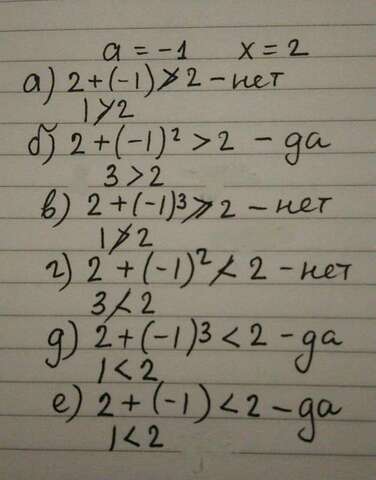 a = -1 x = 2
а) 2 + (-1) ≯ 2 - нет
1 ≯ 2
б) 2 + (-1)² > 2 - да
3 > 2
в) 2 + (-1)³ ≯ 2 - нет
1 ≯ 2
г) 2 + (-1)² ≮ 2 - нет
3 ≮ 2
д) 2 + (-1)³ < 2 - да
1 < 2
е) 2 + (-1) < 2 - да
1 < 2